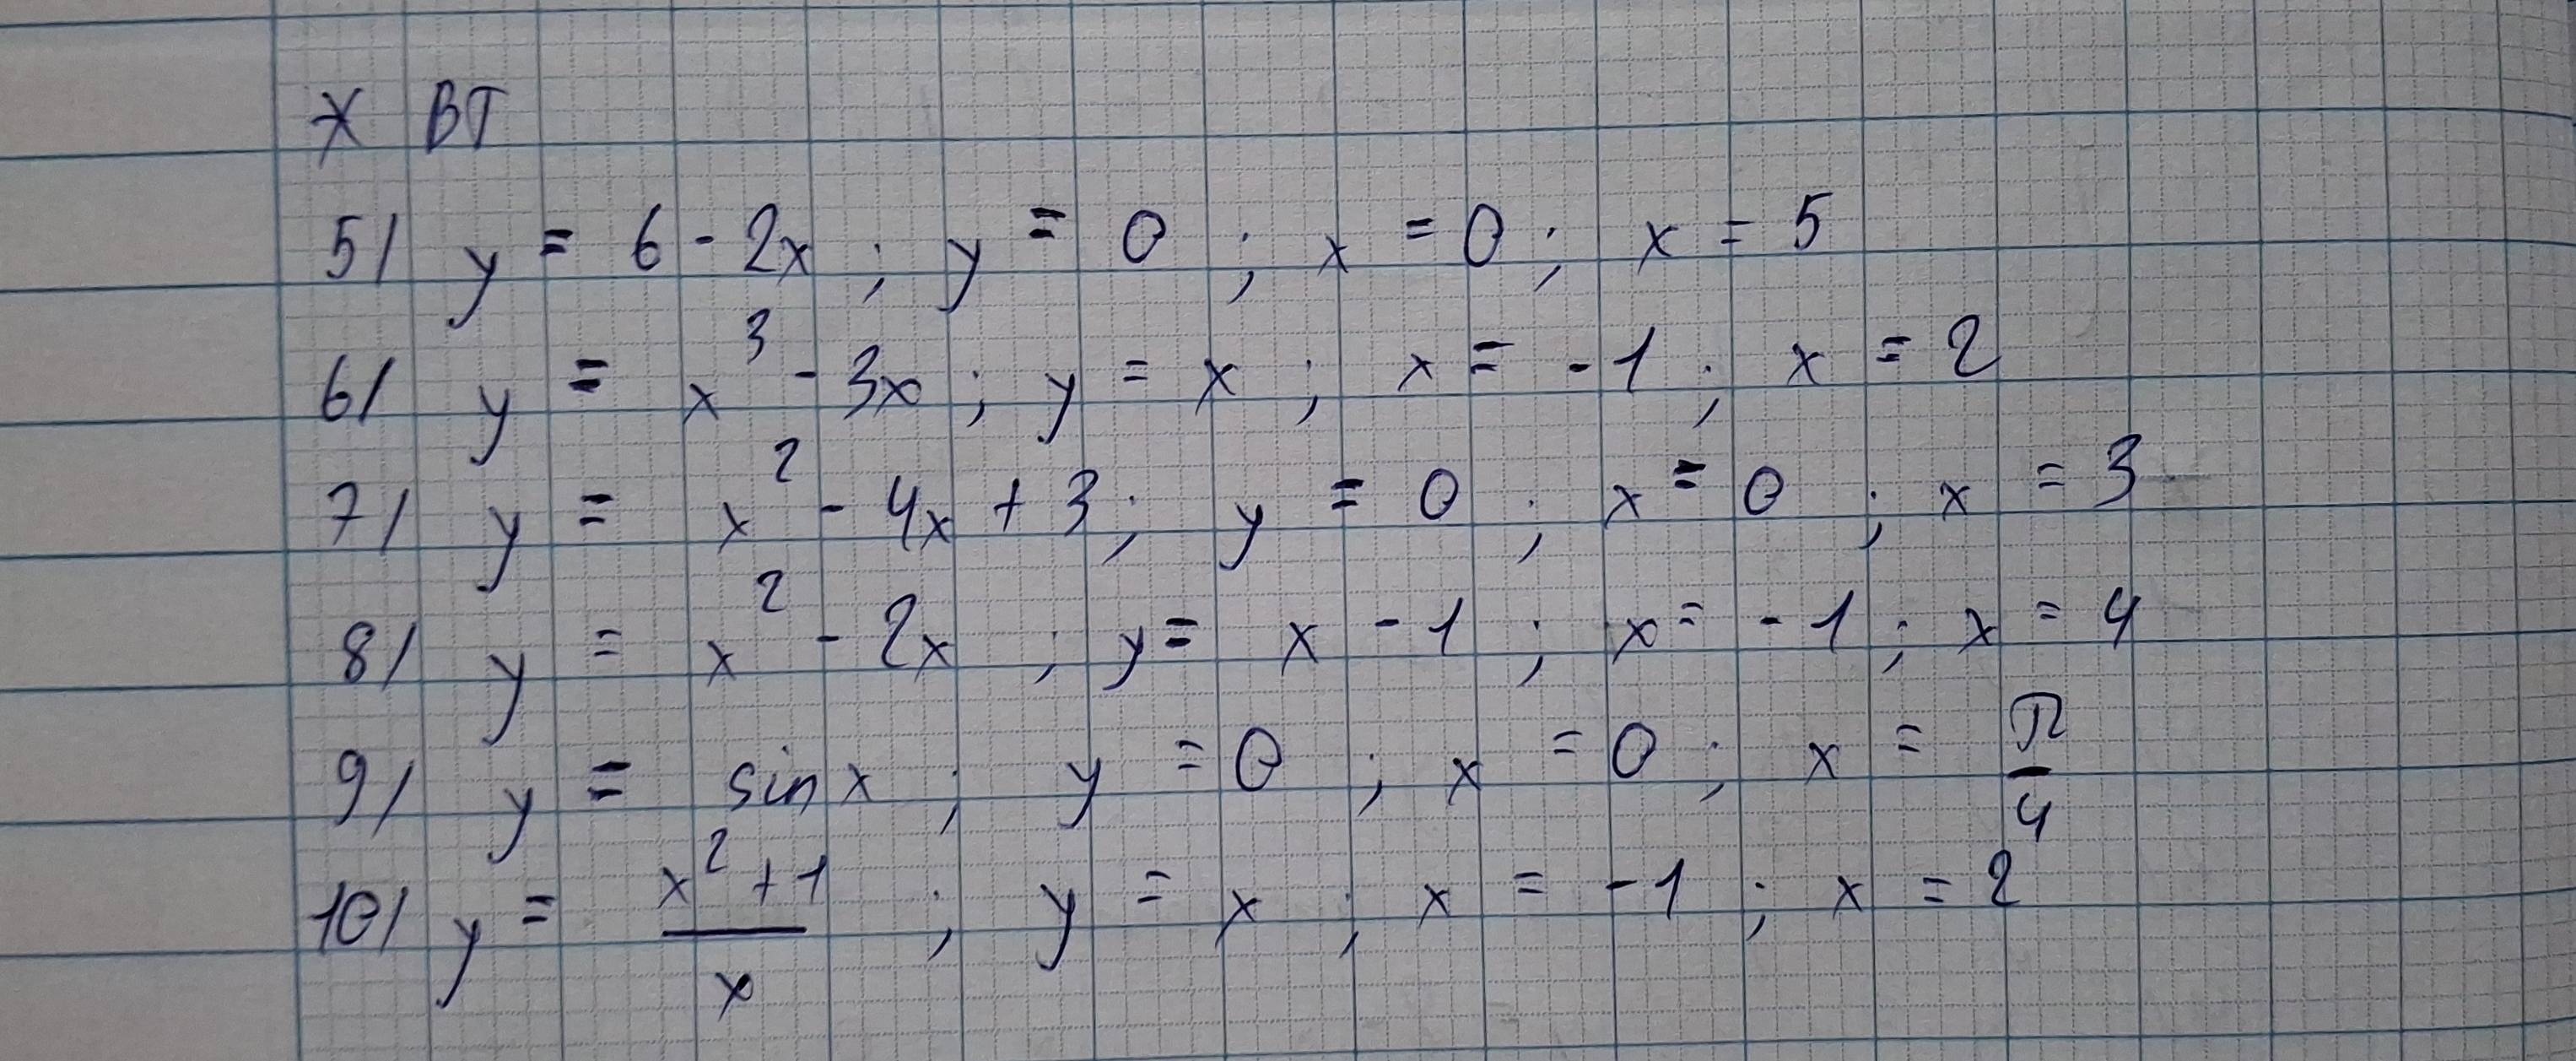 * BT
5/ y = 6 - 2x ; y = 0 ; x = 0 ; x = 5
6/ y = x³ - 3x ; y = x ; x = -1 ; x = 2
7/ y = x² - 4x + 3 ; y = 0 ; x = 0 ; x = 3
8/ y = x² - 2x ; y = x - 1 ; x = -1 ; x = 4
9/ y = sin x ; y = 0 ; x = 0 ; x = π/4
10/ y = (x² + 1)/x ; y = x ; x = -1 ; x = 2